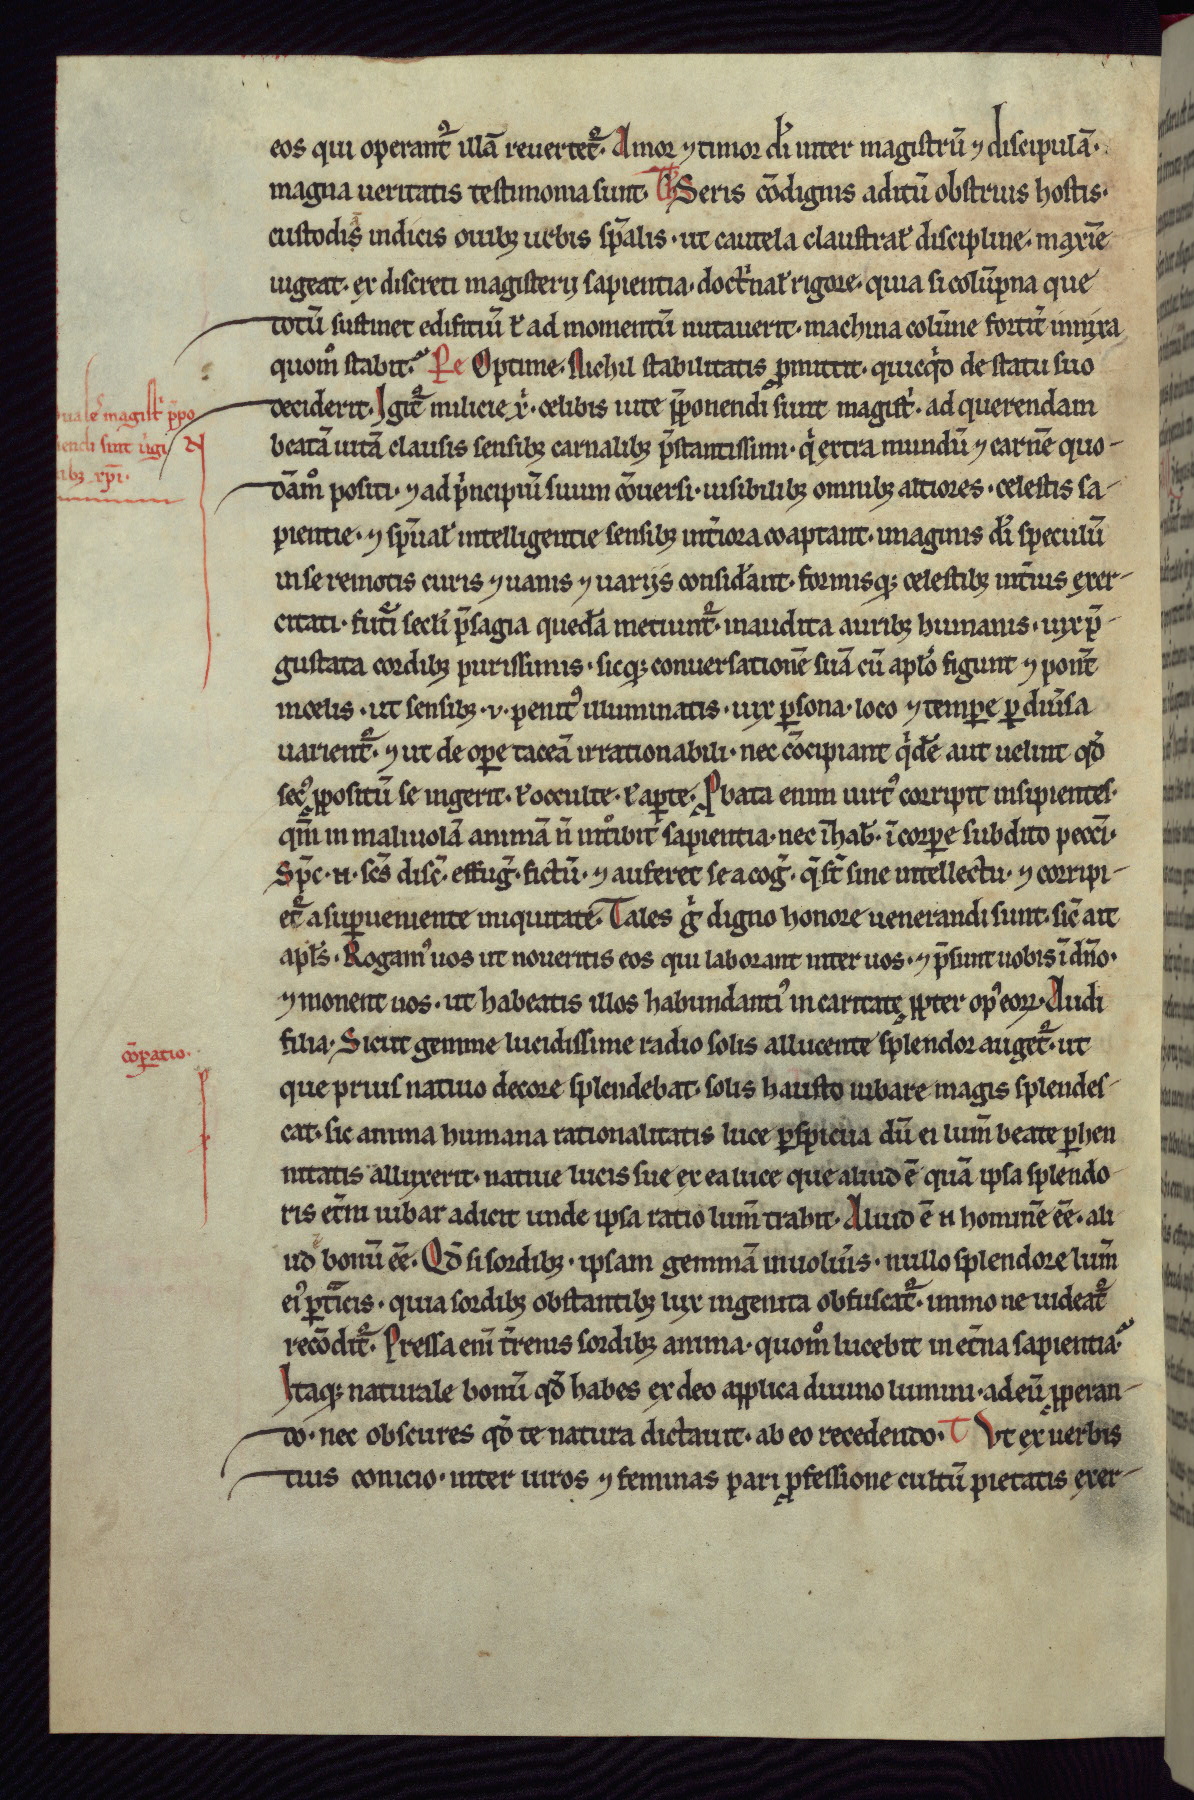 eos qui operant᷑ illā reuertet᷑. Amor ⁊ timor dī inter magistrū ⁊ discipulā.
magna ueritatis testimonia sunt. Th̄ Seris cōdignis aditū obstruis hostis.
custodis indicis ouibꝫ urbis sp̄alis. ut cautela claustral̄ discipline. maxīe
uigeat. ex discreti magisterij sapientia. doct̄nal̄ rigore. quia si colūpna que
totū sustinet edifitiū ł ad momentū nutauerit. machina colūne fortit̄ innixa
quom̊ stabit. Pe Optime. Nichil stabilitatis ꝓmittit. quicq̇d de statu suo
deciderit. Igit᷑ milicie x̄. celibis uite p̄ponendi sunt magist̄. ad querendam
beatā uitā clausis sensibꝫ carnalibꝫ p̄stantissimi. q̇ extra mundū ⁊ carnē quo-
dām̊ positi. ⁊ ad ṗncipiū suum cōuersi. uisibilibꝫ omnibꝫ altiores. celestis sa-
pientie. ⁊ sp̄ual̄ intelligentie sensibꝫ int̄iora coaptant. imaginis dī speculū
in se remotis curis ⁊ uanis ⁊ uarijs consid̄ant. formisqꝫ celestibꝫ int̄ius exer-
citati. fut̄i sec̄li p̄sagia quedā metiunt᷑. inaudita auribꝫ humanis. uix p̄-
gustata cordibꝫ purissimis. sicqꝫ conuersationē suā cū apl̄o figunt ⁊ ponūt
in celis. ut sensibꝫ .v. penit᷒ illuminatis. uix ꝑsona. loco ⁊ tempe ꝑ diūsa
uarient᷑. ⁊ ut de ope taceā irrationabili. nec cōcipiant q̇dē aut uelint qd̄
sec᷒ ꝓpositū se ingerit. ł occulte. ł aꝑte. Ꝓbata enim uirt᷒ corripit insipientes.
qm̄ in maliuolā animā n̄ int̊ibit sapientia. nec īhab̄. ī corpe subdito pecc̄i.
Sp̄c .n. sc̄s disc̄. effuḡ. fictū. ⁊ auferet se a coḡ. q̄ st̄ sine intellectu. ⁊ corripi-
et᷑ a suꝑueniente iniquitate. Tales g̊ digno honore uenerandi sunt. sic̄ ait
apl̄s. Rogam᷒ uos ut noueritis eos qui laborant inter uos. ⁊ p̄sunt uobis ī dn̄o.
⁊ monent uos. ut habeatis illos habundanti᷒ in caritate ꝓpter op᷒ eoꝝ. Audi
filia. Sicut gemme lucidissime radio solis allucente splendor auget᷑. ut
que prius natiuo decore splendebat. solis hausto iubare magis splendes-
cat. sic anima humana rationalitatis luce ꝑspicua dū ei lum̄ beate ꝑhen
nitatis alluxerit. natiue lucis sue ex ea luce que aliud ē quā ipsa splendo
ris et̄ni iubar adicit unde ipsa ratio lum̄ trahit. Aliud ē n̄ hominē ēē. ali
ud bonū ēē. Qd̄ si sordibꝫ. ipsam gemmā inuolūis. nullo splendore lum̄
ei᷒ ꝑt̄icis. quia sordibꝫ obstantibꝫ lux ingenita obfuscat᷑. immo ne uideat᷑
recōdit᷑. Pressa enī t̄renis sordibꝫ anima. quom̊ lucebit in et̄na sapientia.
Itaqꝫ naturale bonū qd̄ habes ex deo applica diuino lumini. ad eū ꝓperan-
do. nec obscures qd̄ te natura dictauit. ab eo recedendo. T Vt ex uerbis
tuis conicio. inter uiros ⁊ feminas pari ꝓfessione cultū pietatis exer-
magist̄ p̄po
sunt ūgi
xp̄i.
cōꝑatio.